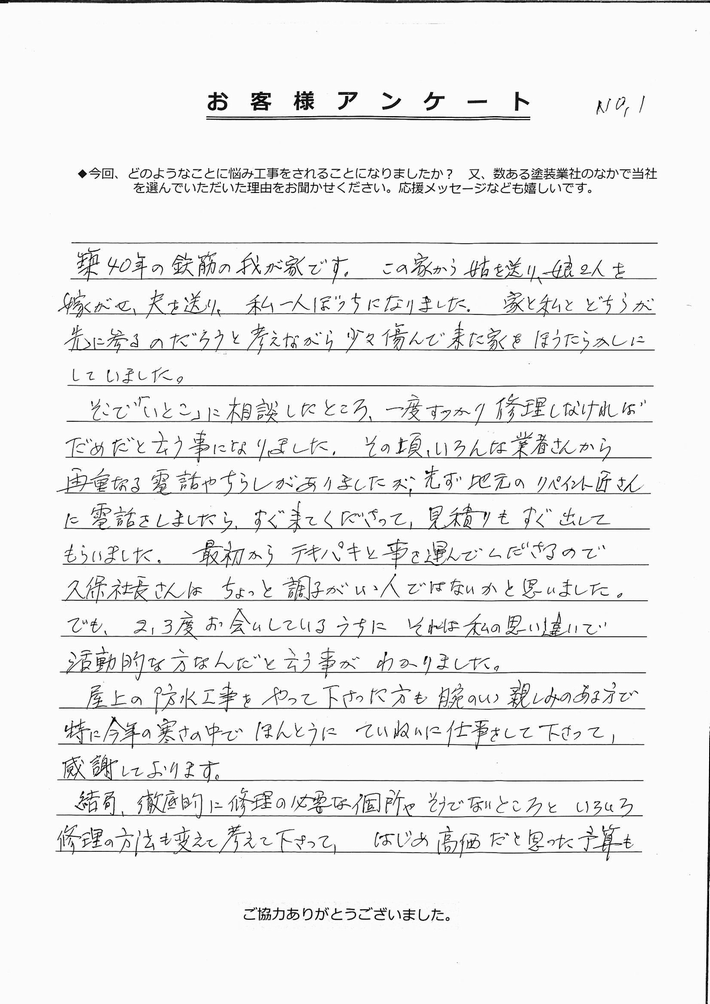 お客様アンケート
NO,1
◆今回、どのようなことに悩み工事をされることになりましたか？　又、数ある塗装業社のなかで当社
を選んでいただいた理由をお聞かせください。応援メッセージなども嬉しいです。
築40年の鉄筋の我が家です。この家から姑を送り、娘2人を
嫁がせ、夫を送り、私一人ぼっちになりました。家と私とどちらが
先に参るのだろうと考えながら少々傷んで来た家をほうたらかしに
していました。
そこで「いとこ」に相談したところ、一度すっかり修理しなければ
だめだと云う事になりました。その頃、いろんな業者さんから
再重なる電話やちらしがありましたが、先ず地元のリペイント匠さん
に電話をしましたら、すぐ来てくださって、見積りもすぐ出して
もらいました。最初からテキパキと事を運んでくださるので
久保社長さんはちょっと調子がいい人ではないかと思いました。
でも、2,3度お会いしているうちにそれは私の思い違いで
活動的な方なんだと云う事がわかりました。
屋上の防水工事をやって下さった方も腕のいい親しみのある方で
特に今年の寒さの中でほんとうにていねいに仕事をして下さって、
感謝しております。
結局、徹底的に修理の必要な個所やそうでないところといろいろ
修理の方法も変えて考えて下さって、はじめ高価だと思った予算も
ご協力ありがとうございました。